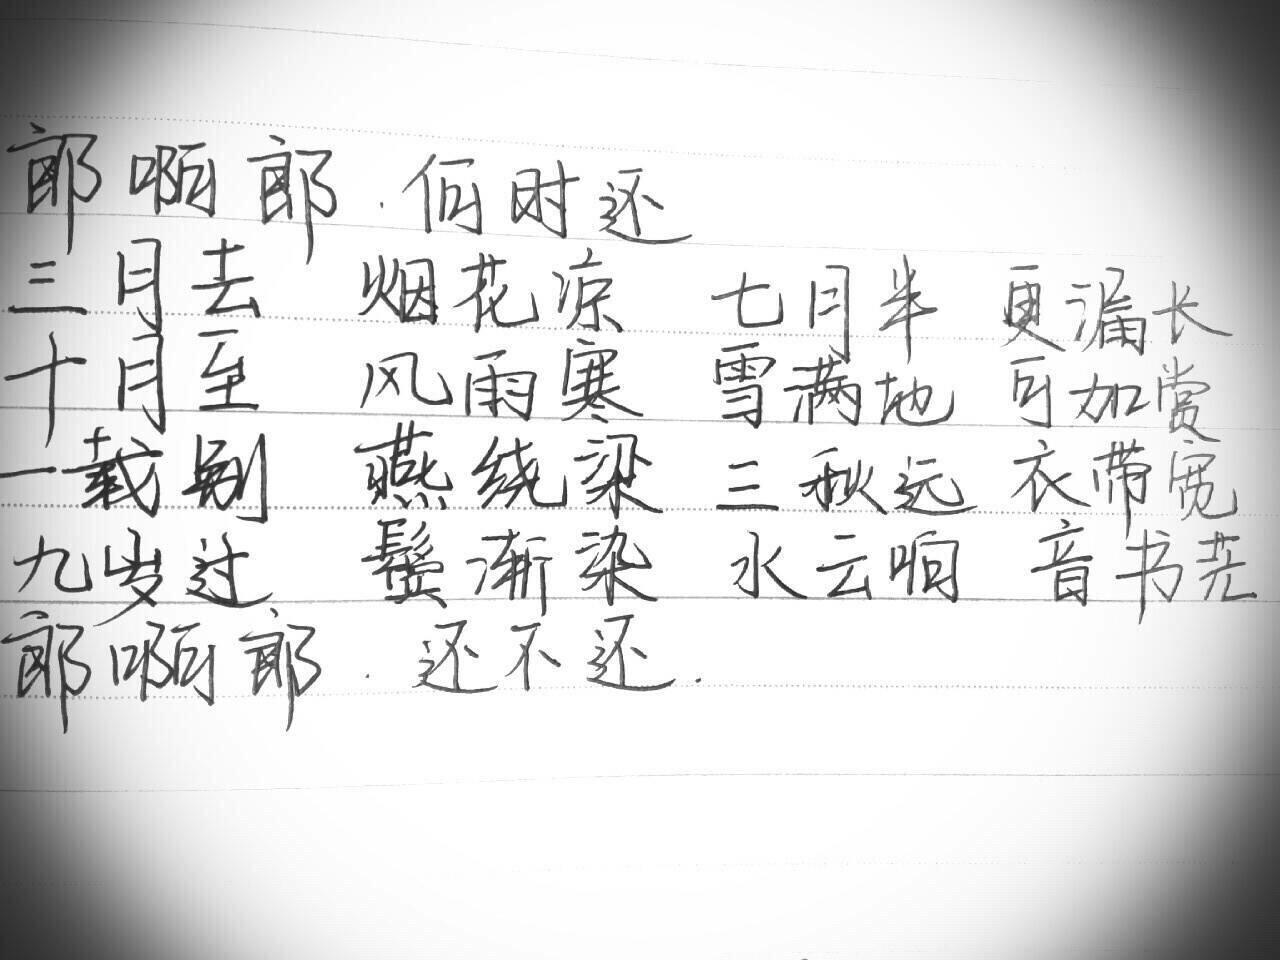 郎啊郎.何时还
三月去 烟花凉 七月半 更漏长
十月至 风雨寒 雪满地 可加赏
一载别 燕绕梁 三秋远 衣带宽
九岁过 鬓渐染 水云响 音书芜
郎啊郎.还不还.